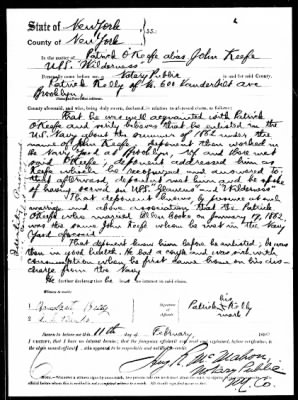 State of New York
County of New York } SS:
In the matter of Patrick O'Keefe alias John Keefe
U.S.S. Wilderness
Personally came before me a Notary Public in and for said County
Patrick Kelly of No. 600 Vanderbilt ave
Brooklyn
County aforesaid, and who, being duly sworn, declares in relation to aforesaid claim, as follows:
That he was well acquainted with Patrick
O'Keefe and verily believes that he enlisted in the
U.S. Navy about the summer of 1862 under the
name of John Keefe; deponent then worked in
the Navy Yard at Brooklyn NY and there met
said O'Keefe; deponent addressed him as
Keefe which he recognized and answered to;
that afterward deponent met him and he spoke
of having served on U.S.S. and "Wilderness"
That deponent knows, by personal acquaintance
and above association that the Patrick
O'Keefe who married Ellen Cooke on January 19, 1862,
was the same John Keefe whom he met in the Navy
Yard aforesaid.
That deponent knew him before he enlisted; he was
then in good health. He had a cough and was sick with
consumption when he first came home on his dis-
charge from the Navy
He further declares that he has no interest in said claim
his
Patrick X Kelly
mark
Sworn to before me this 11th day of February
Notary Public
N.Y. Co.